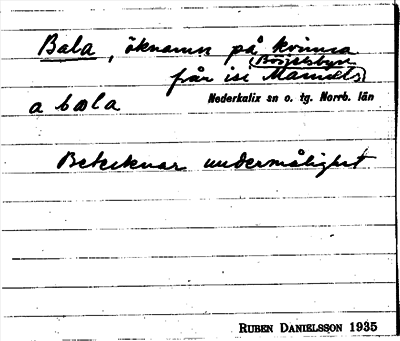 Bala, öknamn på kvinna
(Börjelsbyn
från Mannels)
a bala
Nederkalix sn o. tg. Norrb. län
Betecknar undermålighet
RUBEN DANIELSSON 1935